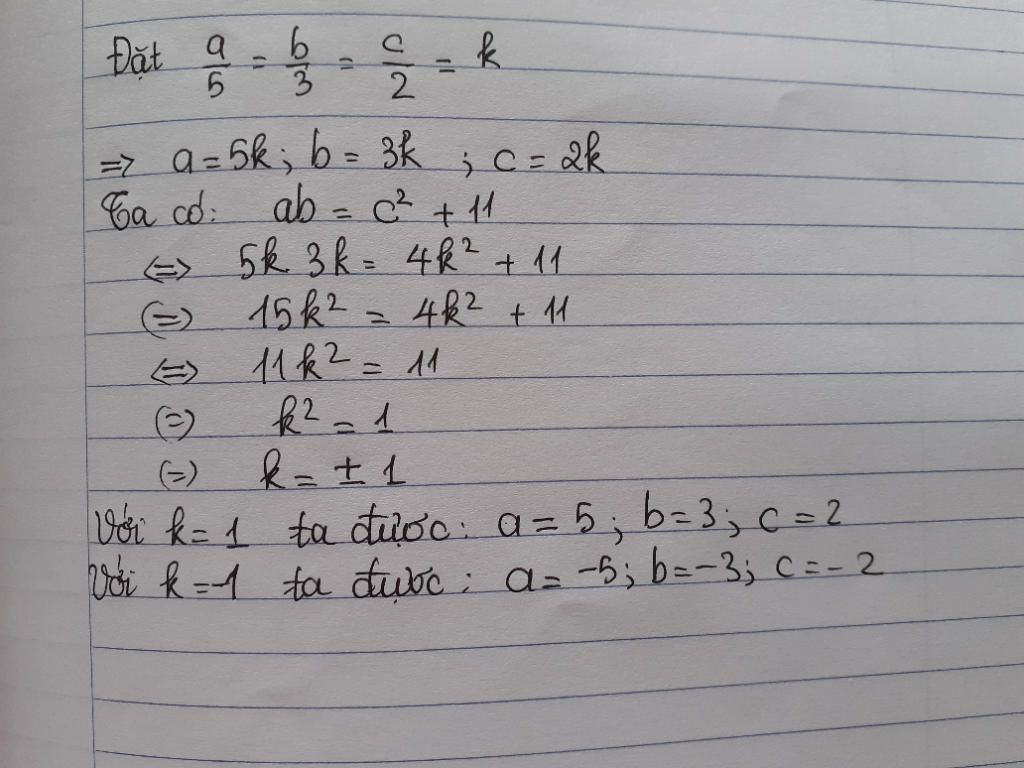 Đặt a/5 = b/3 = c/2 = k
=> a = 5k ; b = 3k ; c = 2k
Ta có: ab = c² + 11
<=> 5k 3k = 4k² + 11
(=) 15k² = 4k² + 11
<=> 11k² = 11
(=) k² = 1
(=) k = ± 1
Với k = 1 ta được: a = 5 ; b = 3 ; c = 2
Với k = -1 ta được : a = -5 ; b = -3 ; c = - 2